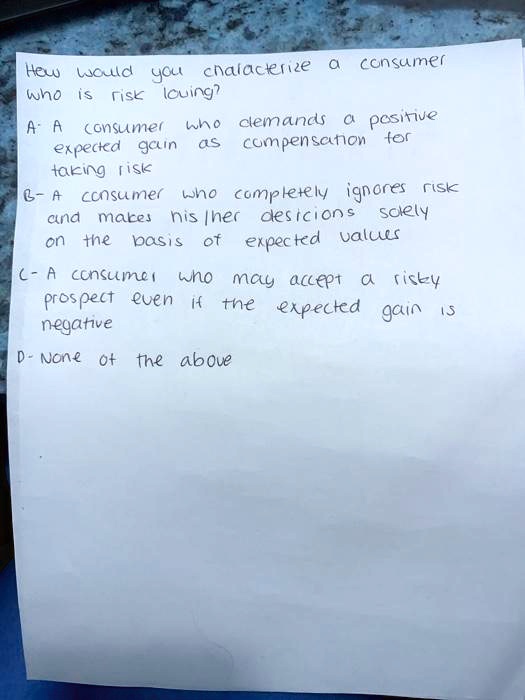 How would you characterize a consumer
who is risk loving?
A- A consumer who demands a positive
expected gain as compensation for
taking risk
B- A consumer who completely ignores risk
and makes his/her desicions solely
on the basis of expected values
C- A consumer who may accept a risky
prospect even if the expected gain is
negative
D- None of the above